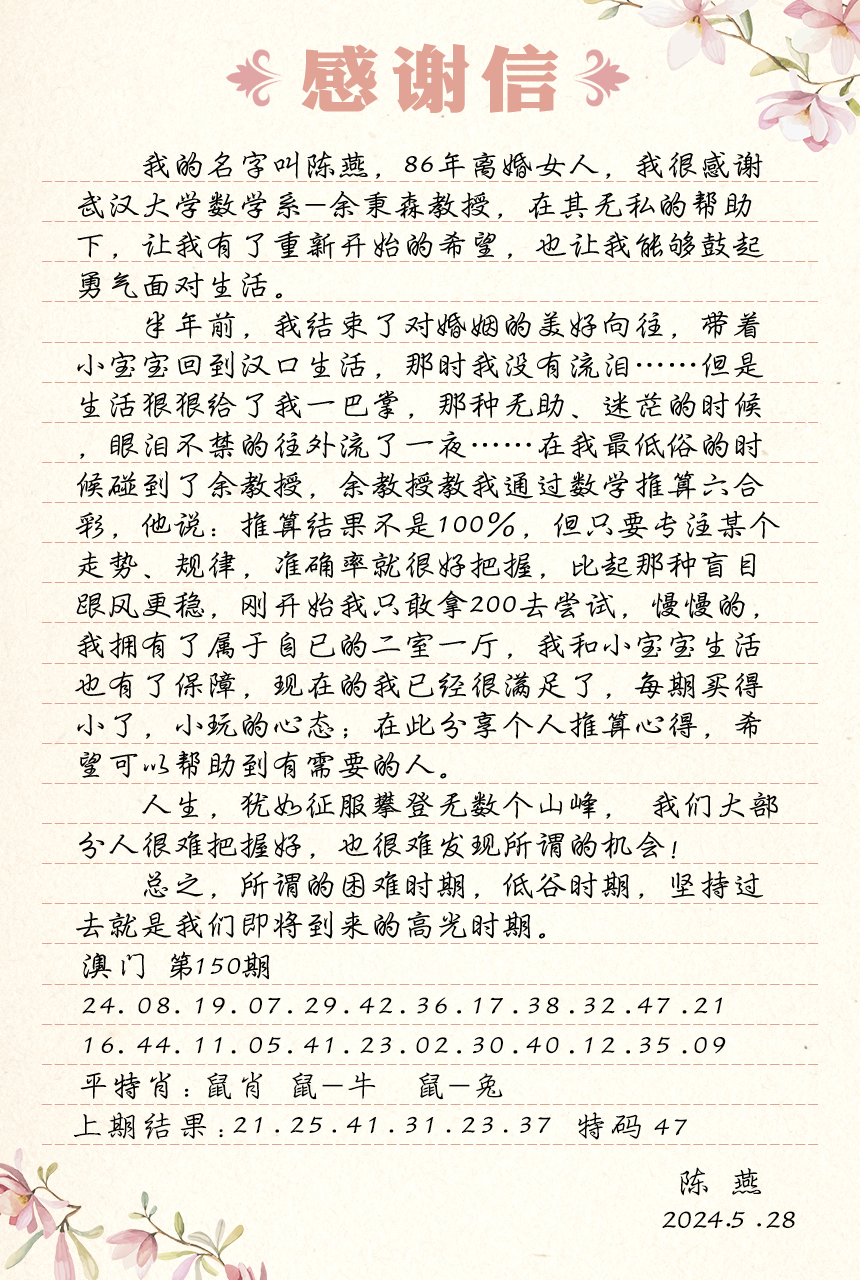 感谢信
我的名字叫陈燕，86年离婚女人，我很感谢
武汉大学数学系—余秉森教授，在其无私的帮助
下，让我有了重新开始的希望，也让我能够鼓起
勇气面对生活。
半年前，我结束了对婚姻的美好向往，带着
小宝宝回到汉口生活，那时我没有流泪……但是
生活狠狠给了我一巴掌，那种无助、迷茫的时候
，眼泪不禁的往外流了一夜……在我最低俗的时
候碰到了余教授，余教授教我通过数学推算六合
彩，他说：推算结果不是100%，但只要专注某个
走势、规律，准确率就很好把握，比起那种盲目
跟风更稳，刚开始我只敢拿200去尝试，慢慢的，
我拥有了属于自已的二室一厅，我和小宝宝生活
也有了保障，现在的我已经很满足了，每期买得
小了，小玩的心态；在此分享个人推算心得，希
望可以帮助到有需要的人。
人生，犹如征服攀登无数个山峰， 我们大部
分人很难把握好，也很难发现所谓的机会！
总之，所谓的困难时期，低谷时期，坚持过
去就是我们即将到来的高光时期。
澳门 第150期
24.08.19.07.29.42.36.17.38.32.47.21
16.44.11.05.41.23.02.30.40.12.35.09
平特肖：鼠肖 鼠—牛 鼠—兔
上期结果：21.25.41.31.23.37 特码 47
陈 燕
2024.5.28